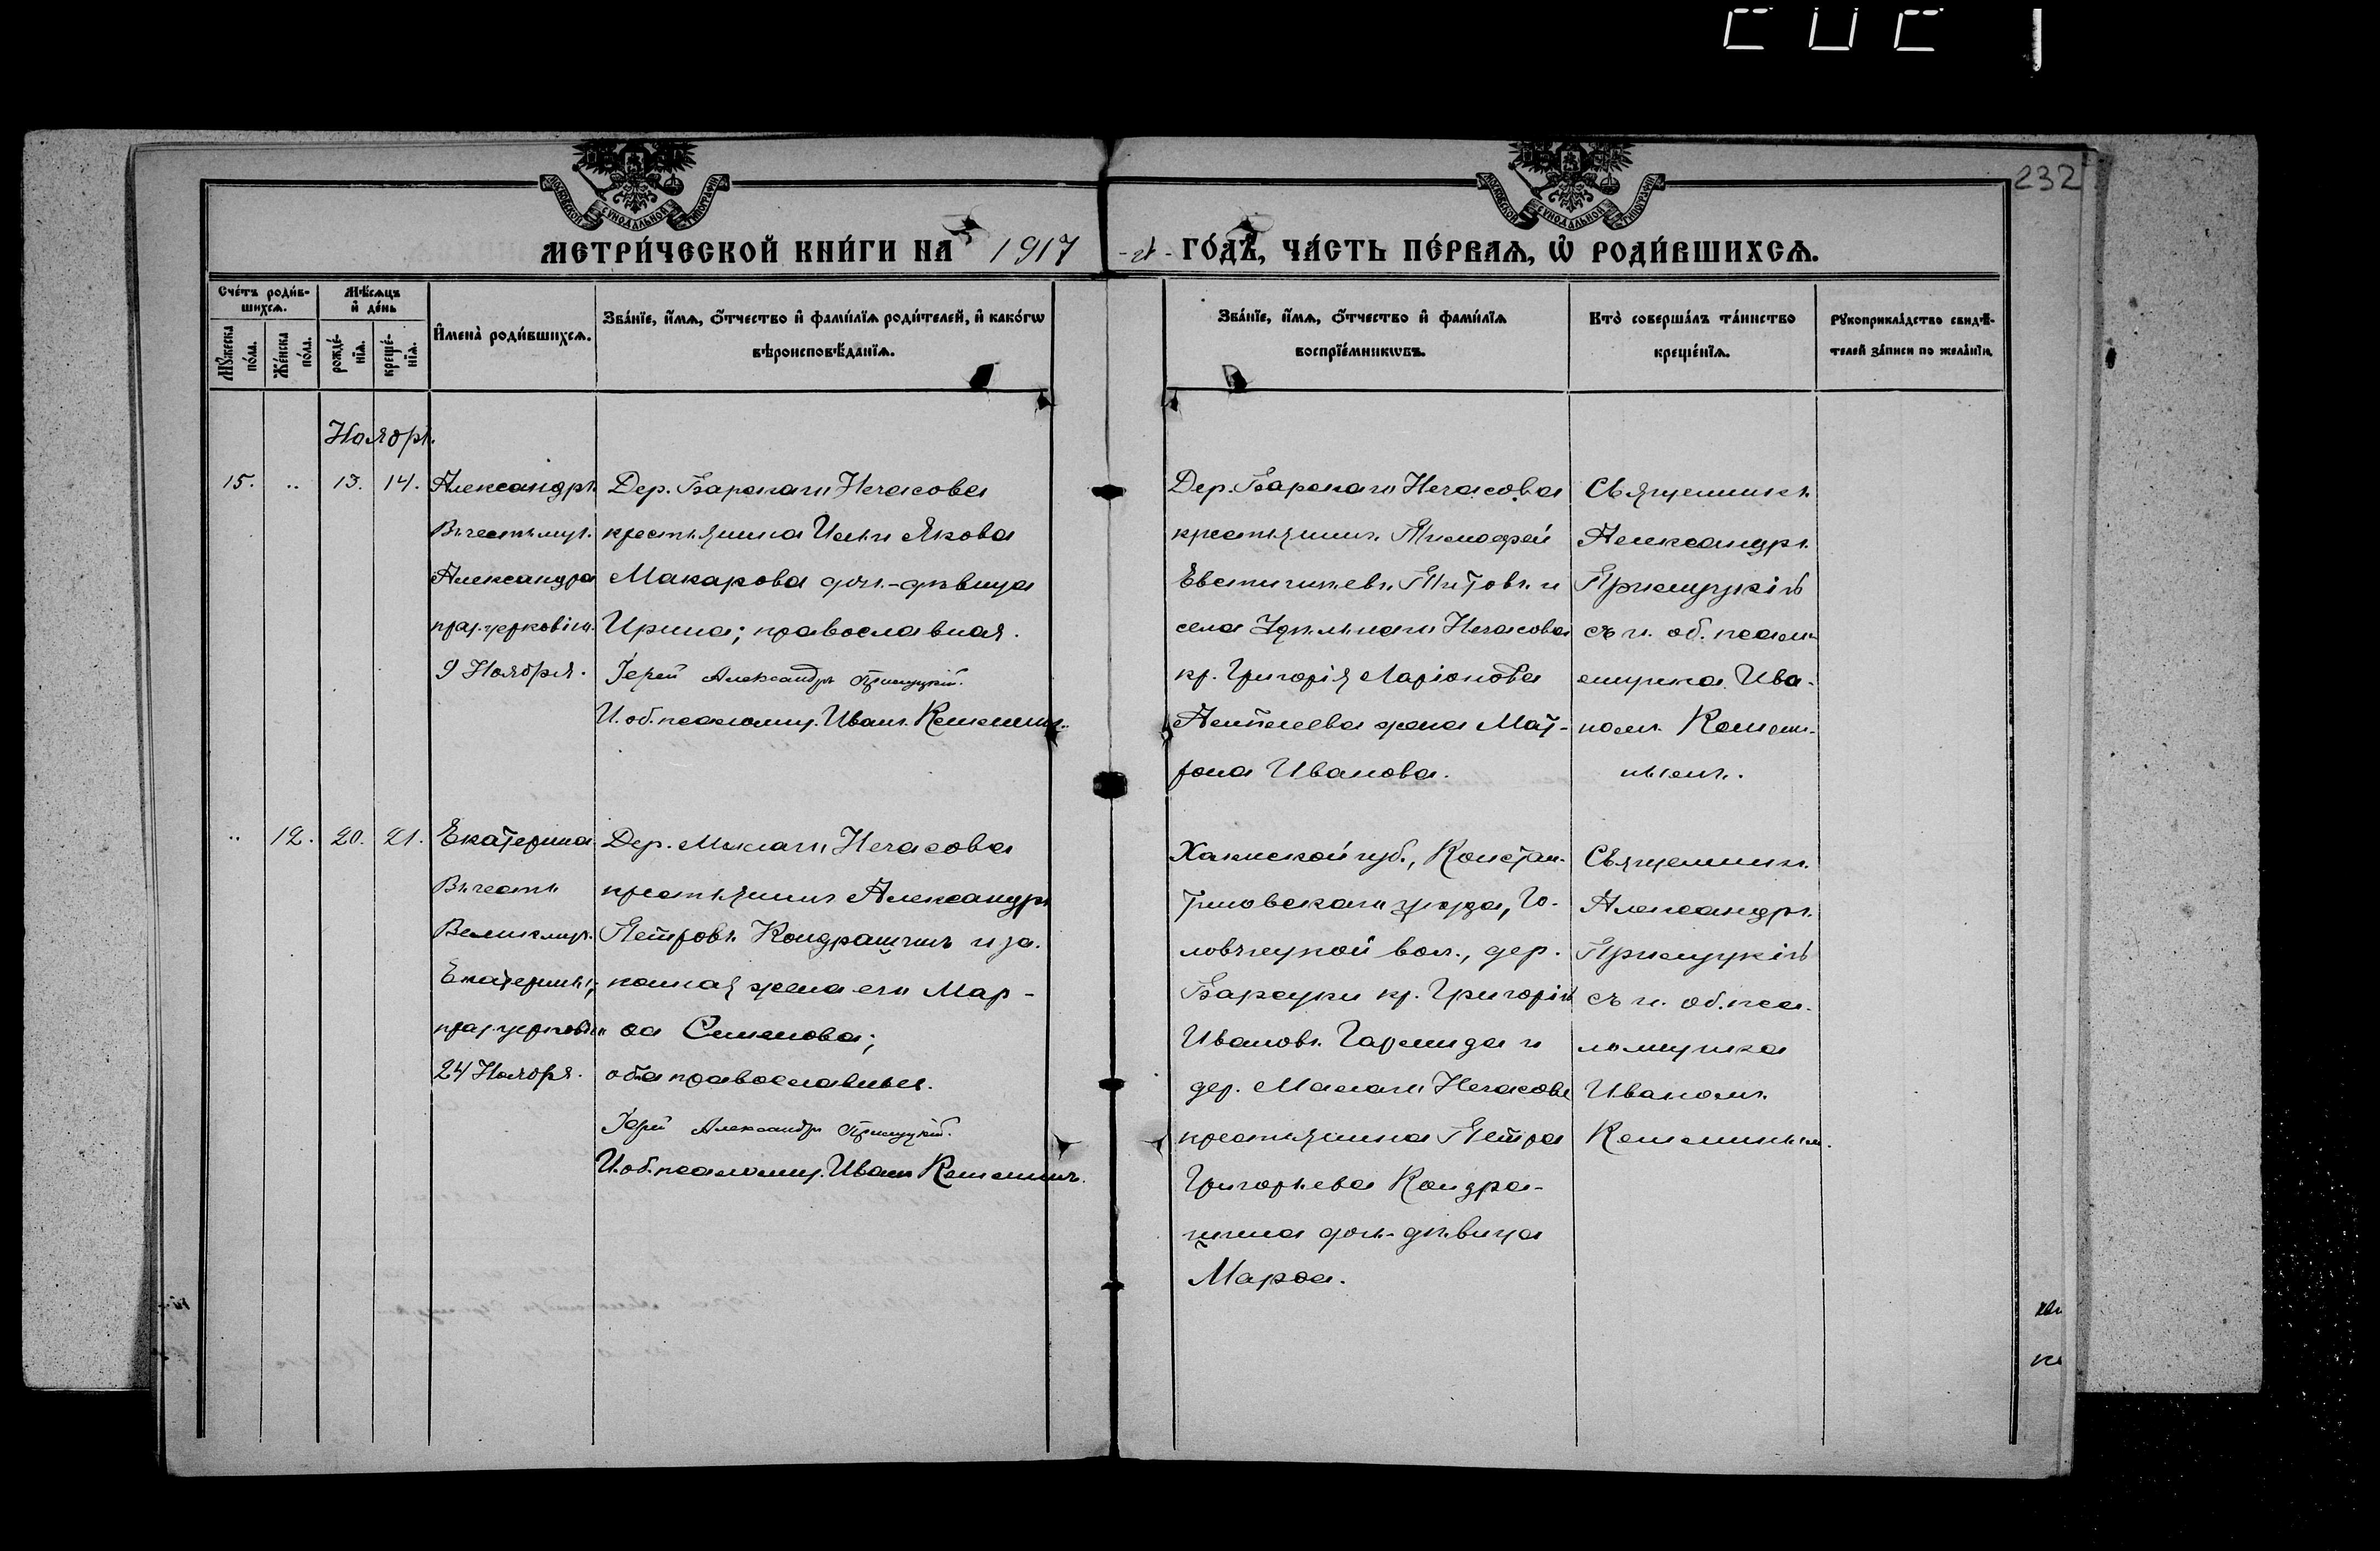 232
МОСКОВСКОЙ СѴНОДАЛЬНОЙ ТИПОГРАФІИ
МОСКОВСКОЙ СѴНОДАЛЬНОЙ ТИПОГРАФІИ
МЕТРИ́ЧЕСКОЙ КНИ́ГИ НА 1917 -й- ГО́ДЪ, ЧА́СТЬ ПЕ́РВАѦ, Ѡ҆ РОДИ́ВШИХСѦ.
Сче́тъ роди́в-
шихсѧ.
Мꙋ́жеска по́ла.
Же́нска по́ла.
Мѣ́сѧцъ
и҆ де́нь
рожде́-
нїѧ.
креще́-
нїѧ.
И҆мена̀ роди́вшихсѧ.
Зва́нїе, и҆́мѧ, ѻ҆́тчество и҆ фами́лїѧ роди́телей, и҆ како́гѡ
вѣроисповѣ́данїѧ.
Зва́нїе, и҆́мѧ, ѻ҆́тчество и҆ фами́лїѧ
воспрїе́мникѡвъ.
Кто̀ соверша́лъ та́инство
креще́нїѧ.
Рꙋкоприкла́дство свидѣ́-
телей за́писи по жела́нїю.
Ноябрь.
15. „ 13. 14. Александръ
Въ честь муч.
Александра
праз. церковію
9 Ноября.
Дер. Барскаго Нечасова
крестьянина Ильи Якова
Макарова дочь-дѣвица
Ирина; православная.
Іерей Александръ Прилуцкій.
И. об. псаломщ. Иванъ
Дер. Барскаго Нечасова
крестьянинъ Тимофей
Евстигнѣевъ Титовъ и
села Удѣльнаго Нечасова
кр. Григорія Ларіонова
жена Мат-
рона Иванова.
Священникъ
Александръ
Прилуцкій
съ и. об. псалом-
щика Ива-
номъ
„ 12. 20. 21. Екатерина
Въ честь
Великмуч.
Екатерины;
праз. церковію
24 Ноября.
Дер. Малаго Нечасова
крестьянинъ Александръ
Петровъ Кондрашинъ и за-
конная жена его Мар-
ѳа Семенова;
оба православные.
Іерей Александръ Прилуцкій.
И. об. псаломщ. Иванъ
губ., Констан-
тиновскаго уѣзда, Го-
вол., дер.
Барсуки кр. Григорій
Ивановъ и
дер. Малаго Нечасова
крестьянина Петра
Григорьева Кондра-
шина дочь-дѣвица
Марѳа.
Священникъ
Александръ
Прилуцкій
съ и. об. пса-
ломщика
Иваномъ